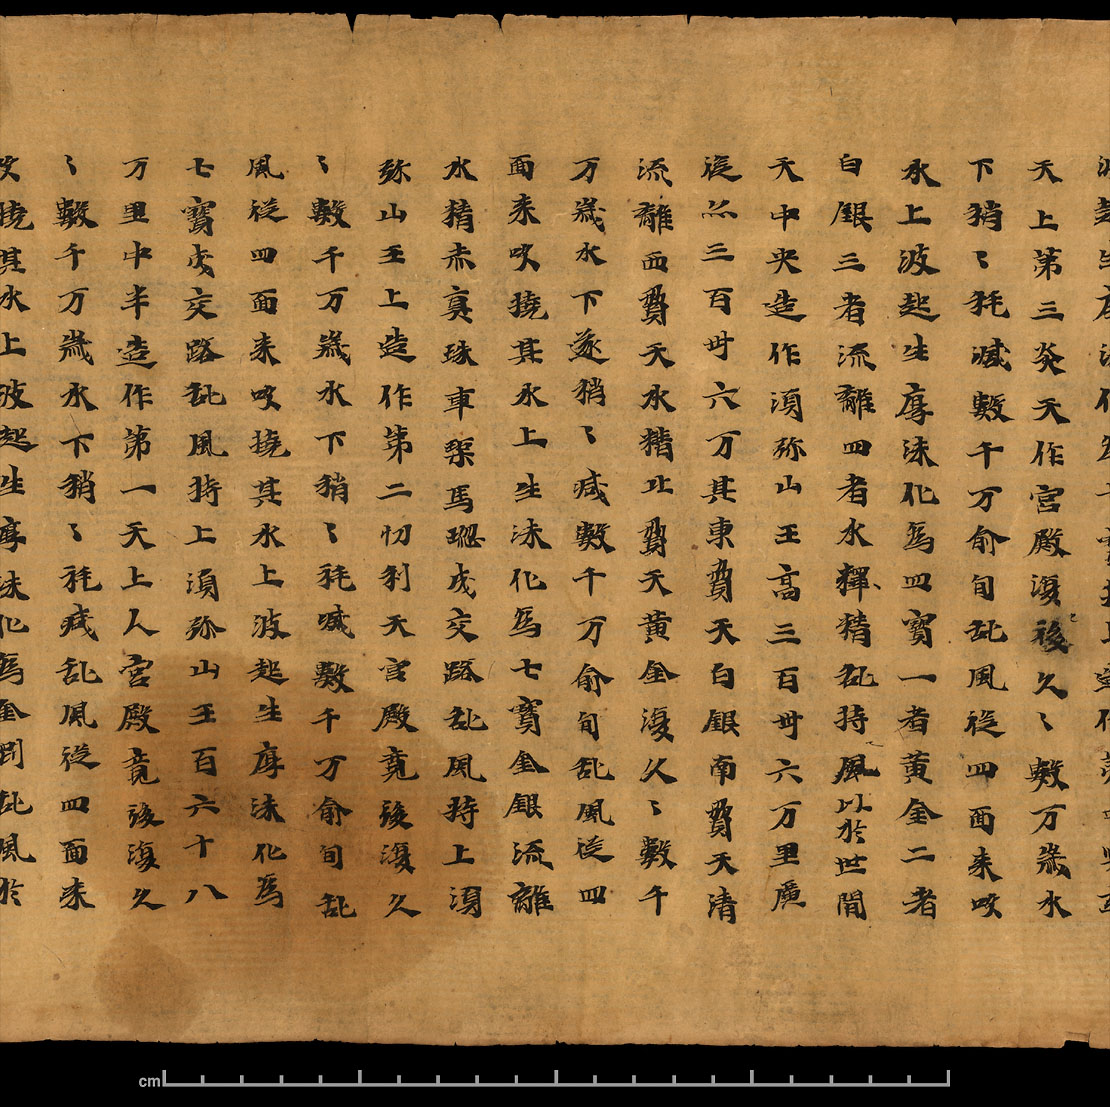 天上第三炎天作宮殿復後久〻數万歲水
下稍〻秏減數千万俞旬乱風從四面来吹
水上波起生厚沫化為四寶一者黃金二者
白銀三者流離四者水釋精乱持風以於世間
天中央造作湏弥山王高三百卅六万里廣
從亦三百卅六万其東費天白銀南費天清
流離西費天水精北費天黃金復久〻數千
万歲水下遂稍〻減數千万俞旬乱風從四
面来吹撓其水上生沫化為七寶金銀流離
水精赤真珠車渠馬瑙成交路乱風持上湏
弥山王上造作第二忉利天宮殿竟後復久
〻數千万歲水下稍〻秏減數千万俞旬乱
風從四面来吹撓其水上波起生厚沫化為
七寶成交路乱風持上湏弥山王百六十八
万里中半造作第一天上人宮殿竟後復久
〻數千万歲水下稍〻秏減乱風從四面来
吹撓其水上波起生厚沫化為金剛乱風於
cm